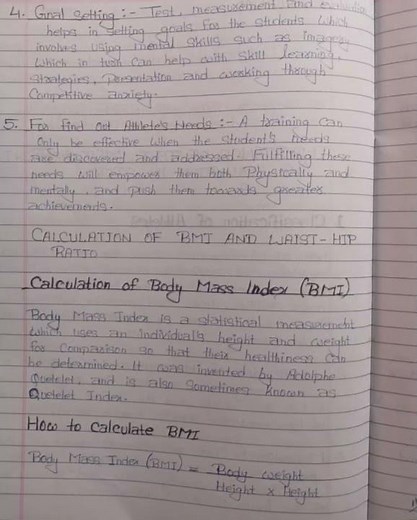 4. Goal Setting :- Test, measurement and evaluation
helps in setting goals for the students which
involves using mental skills such as imagery
which in turn can help with skill learning,
strategies, Presentation and working through
Competitive anxiety.
5. For find out Athlete's Needs :- A training can
only be effective when the student's needs
are discovered and addressed. Fulfilling these
needs will empower them both Physically and
mentally, and push them towards greater
achievements.
CALCULATION OF BMI AND WAIST-HIP
RATIO
Calculation of Body Mass Index (BMI)
Body Mass Index is a statistical measurement
which uses an individual's height and weight
for comparison so that their healthiness can
be determined. It was invented by Adolphe
Quetelet, and is also sometimes known as
Quetelet Index.
How to Calculate BMI
Body Mass Index (BMI) = Body weight
Height x Height